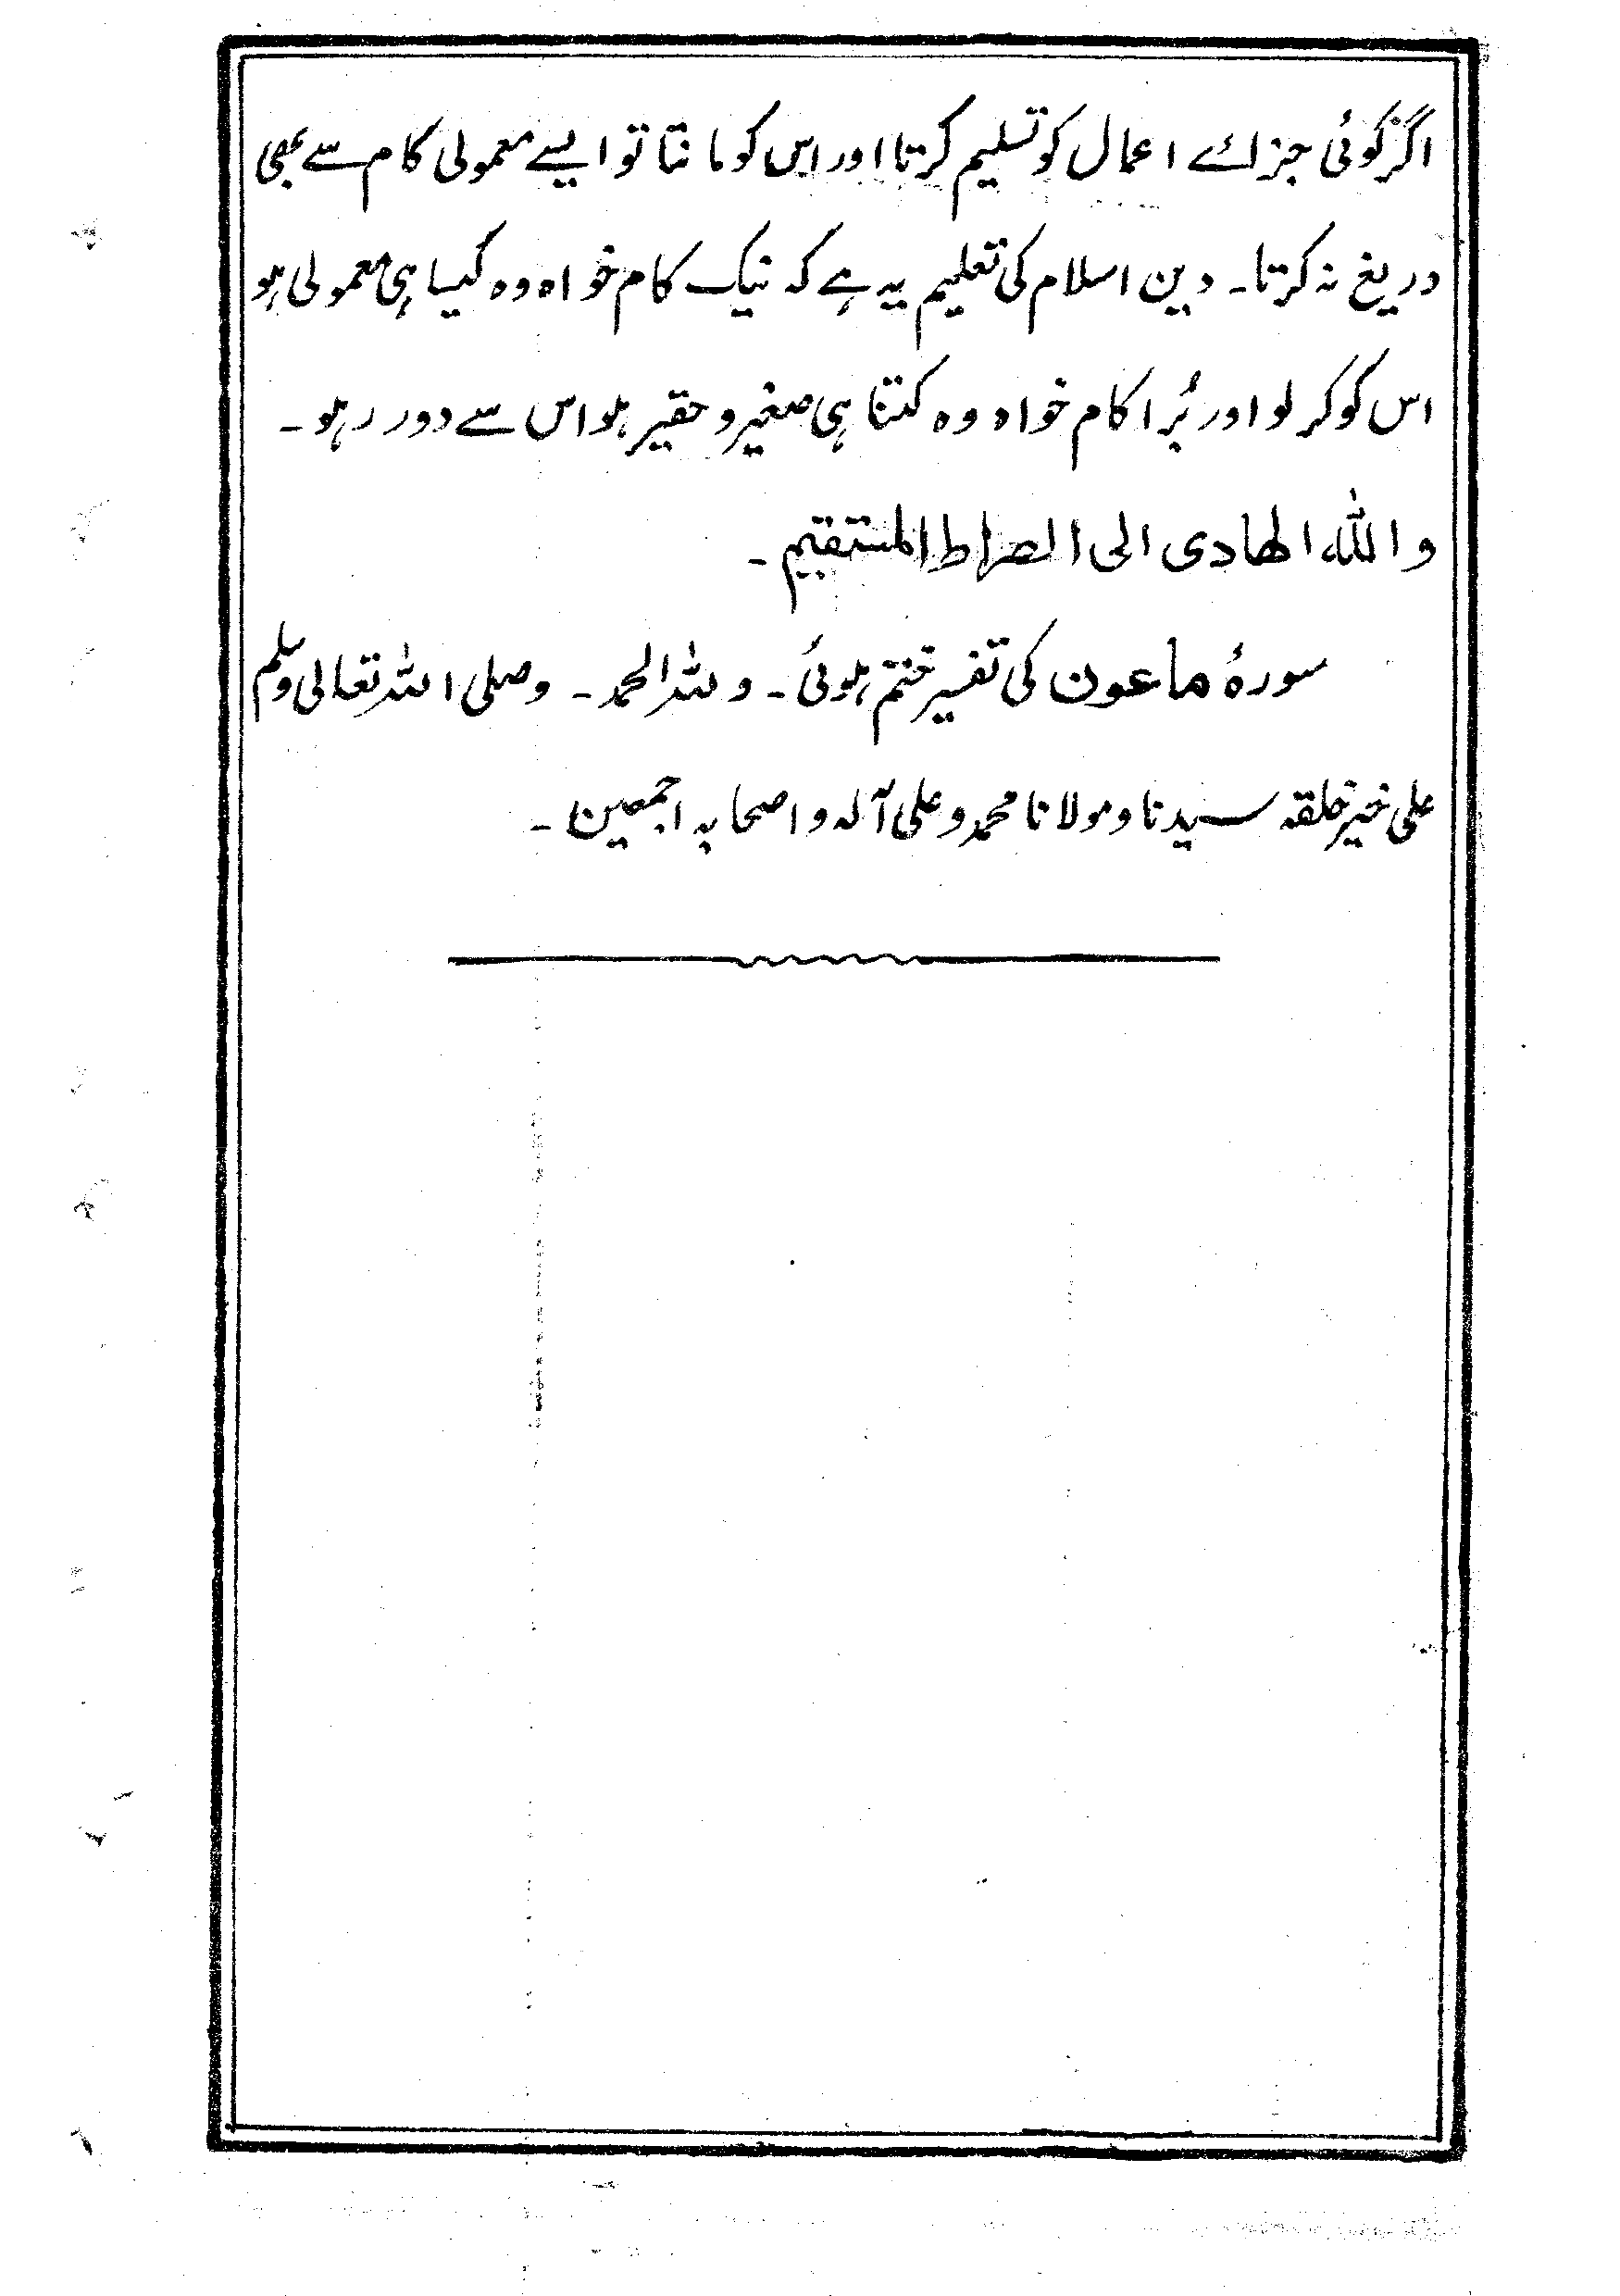 اگر کوئی جزائے اعمال کو تسلیم کرتا اور اس کو مانتا تو ایسے معمولی کام سے بھی
دریغ نہ کرتا۔ دین اسلام کی تعلیم یہ ہے کہ نیک کام خواہ وہ کیسا ہی معمولی ہو
اس کو کر لو اور بُرا کام خواہ وہ کتنا ہی صغیر و حقیر ہو اس سے دور رہو۔
واللہ الھادی الی الصراط المستقیم۔
سورۂ ماعون کی تفسیر ختم ہوئی۔ وللہ الحمد۔ وصلی اللہ تعالی وسلم
علی خیر خلقہ سیدنا ومولانا محمد وعلی آلہ واصحابہ اجمعین۔